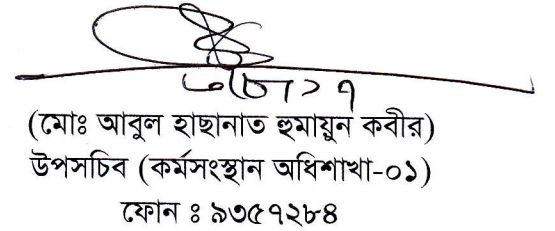 (মোঃ আবুল হাছানাত হুমায়ুন কবীর)
উপসচিব (কর্মসংস্থান অধিশাখা-০১)
ফোন ঃ ৯৩৫৭২৮৪